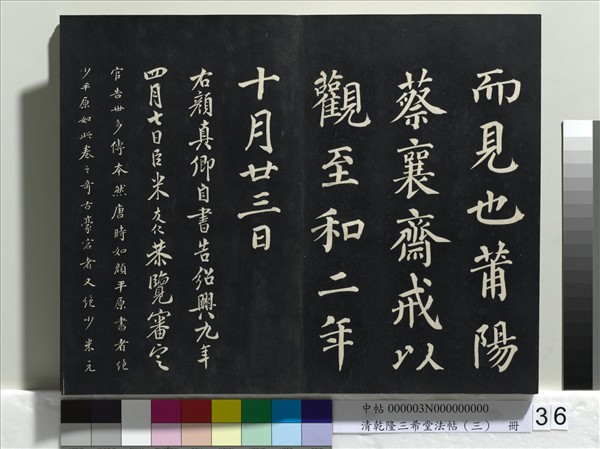 而見也莆陽
蔡襄齋戒以
觀至和二年
十月廿三日
右顏真卿自書告紹興九年
四月七日臣米友仁恭覽審定
官告世多傳本然唐時如顏平原書者絕
少平原如此卷之奇古豪宕者又絕少米元
中帖 000003N000000000
清乾隆三希堂法帖（三） 冊
36